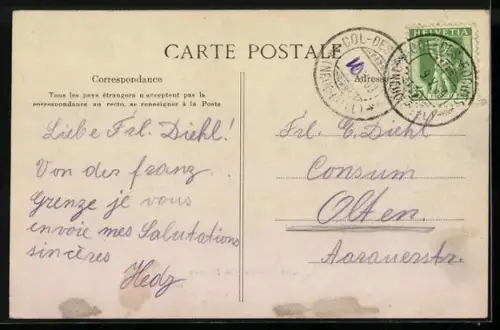 CARTE POSTALE
Correspondance
Adresse
Tous les pays étrangers n'acceptent pas la
correspondance au recto, se renseigner à la Poste
HELVETIA
COL-DES-
10
Liebe Frl. Diehl!
Von der franz.
Grenze je vous
envoie mes Salutations
sincères
Hedy
Frl. E. Diehl
Consum
Olten.
Aarauerstr.